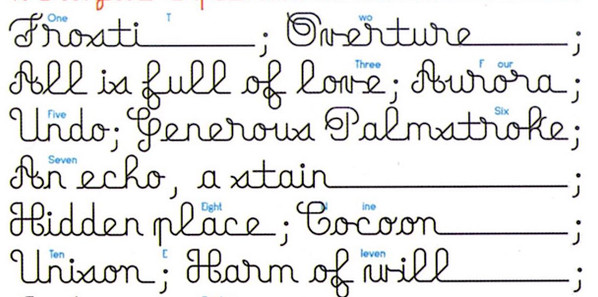 One T wo
Frosti ; Overture ;
Three F our
All is full of love; Aurora;
Five Six
Undo; Generous Palmstroke;
Seven
An echo, a stain ;
Eight N ine
Hidden place; Cocoon ;
Ten E leven
Unison ; Harm of will ;